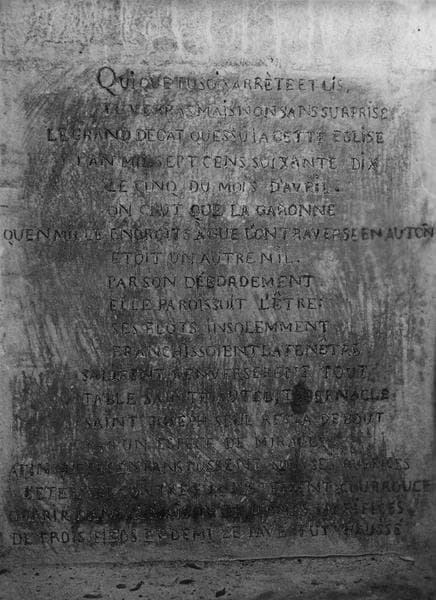 QUI QUE TU SOIS ARRÊTE ET LIS,
TU VERRAS MAIS NON SANS SURPRISE
LE GRAND DEGAT QU'ESSUIA CETTE EGLISE
L'AN MIL SEPT CENS SOIXANTE DIX
LE CINQ DU MOIS D'AVRIL.
ON CRUT QUE LA GARONNE
QU'EN MILLE ENDROITS A GUE L'ON TRAVERSE EN AUTON
ETOIT UN AUTRE NIL.
PAR SON DÉBORDEMENT
ELLE PAROISSOIT L'ÊTRE;
SES FLOTS INSOLEMMENT
FRANCHISSOIENT LA FENETRE
RENVERSERENT TOUT,
TABLE SAINTE AUTEL, TABERNACLE
SAINT JOSEPH SEUL RESTA DEBOUT
PAR UN ESPECE DE MIRACLE
AFIN QUE
COURROUCE
DE TROIS PIEDS ET DEMI LE PAVE FUT HAUSSÉ